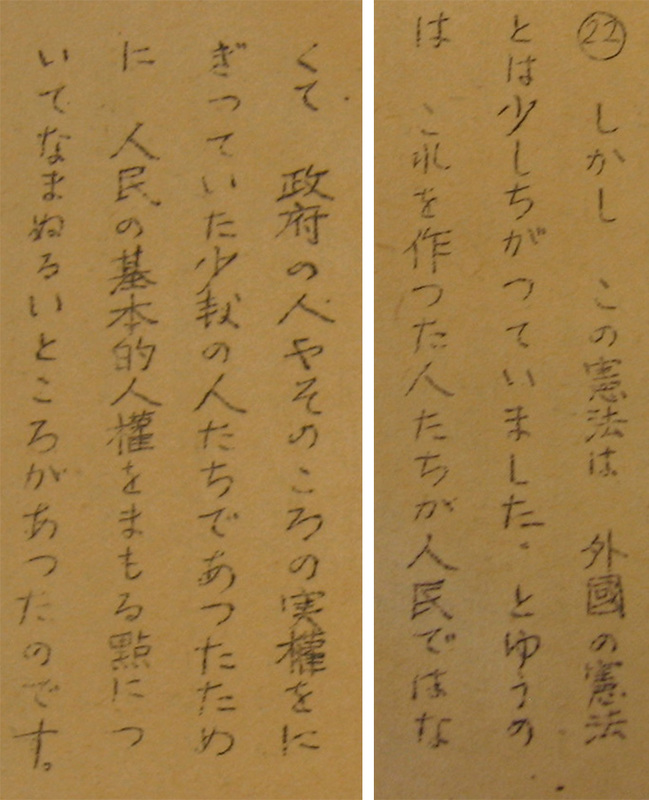 ㉒ しかし この憲法は 外國の憲法
とは少しちがつていました。とゆうの
は これを作つた人たちが人民ではな
くて 政府の人やそのころの実權をに
ぎつていた少数の人たちであつたため
に 人民の基本的人權をまもる點につ
いてなまぬるいところがあつたのです。